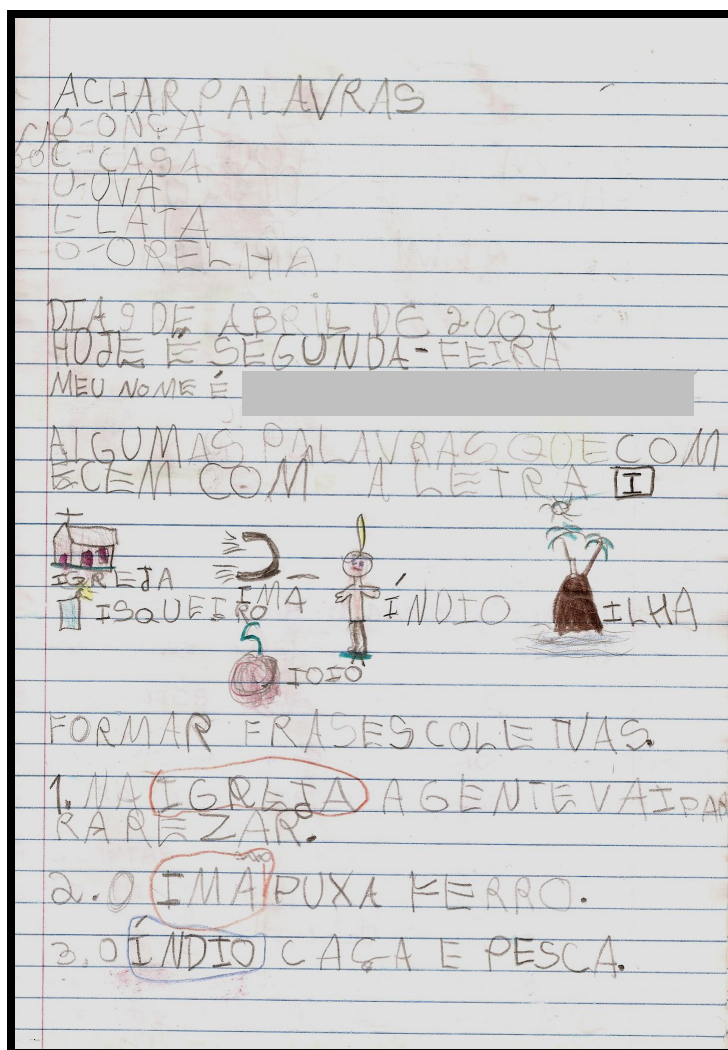 ACHAR PALAVRAS
O-ONÇA
C-CASA
U-UVA
L-LATA
O-ORELHA
DIA 9 DE ABRIL DE 2007
HOJE É SEGUNDA-FEIRA
MEU NOME É
ALGUMAS PALAVRAS QUE COM
ECEM COM A LETRA I
IGREJA
IMÃ
ISQUEIRO
ÍNDIO
ILHA
IOIO
FORMAR FRASES COLETIVAS.
1. NA IGREJA A GENTE VAI PAR
RA REZAR.
2. O IMÃ PUXA FERRO.
3. O ÍNDIO CAÇA E PESCA.